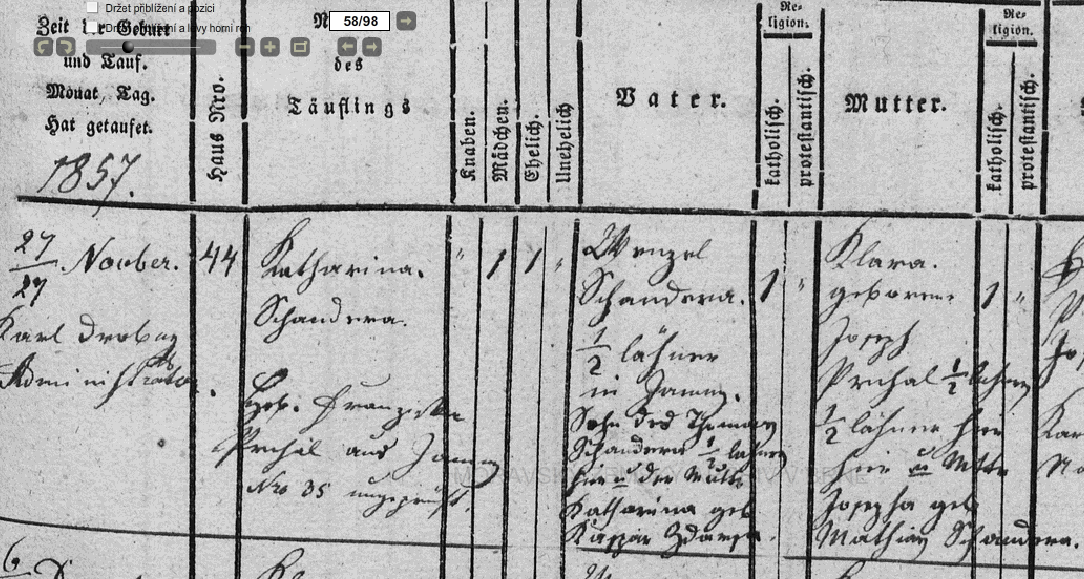 Držet přiblížení a pozici
Držet přiblížení a levý horní roh
58/98
Zeit der Geburt
und Tauf.
Monat, Tag.
Hat getaufet.
1857.
Haus Nro.
des
Täuflings
Knaben.
Mädchen.
Ehelich.
Unehelich
Vater.
Re-
ligion.
katholisch.
protestantisch.
Mutter.
Re-
ligion.
katholisch.
protestantisch.
27
27 November.
Karl Drobny
Administrator.
44
Katharina.
Schandera.
Heb. Franziska
Prchal aus Jamny
Nro 35 ungeprüft.
" 1 1 "
Wenzel
Schandera.
1/2 lähner
in Jamny.
Sohn des Thomas
Schandera 1/2 lahner
hier u der Mutter
Katharina geb
Kaspar
1 "
Klara.
geborene
Joseph
Prchal 1/2
1/2 lähner hier
hier u Mutter
Josepha geb
Mathias Schandera.
1 "
6